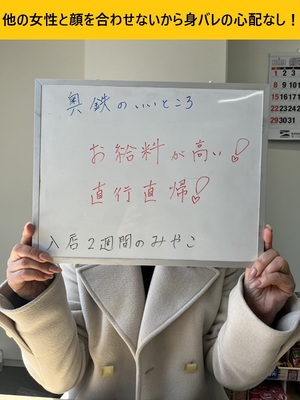 他の女性と顔を合わせないから身バレの心配なし！
奥鉄のいいところ
お給料が高い！
直行直帰！
入店2週間のみやこ
1
8
15
22
29